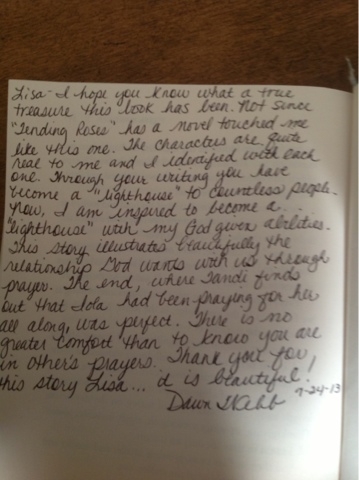 Lisa - I hope you know what a true
treasure this book has been. Not since
"Tending Roses" has a novel touched me
like this one. The characters are quite
real to me and I identified with each
one. Through your writing you have
become a "lighthouse" to countless people.
Now, I am inspired to become a...
"lighthouse" with my God given abilities.
This story illustrates beautifully the
relationship God wants with us through
prayer. The end, where Tandi finds
out that Iola had been praying for her
all along, was perfect. There is no
greater comfort than to know you are
in other's prayers. Thank you for
this story Lisa... it is beautiful!
Dawn Webb 7-24-13